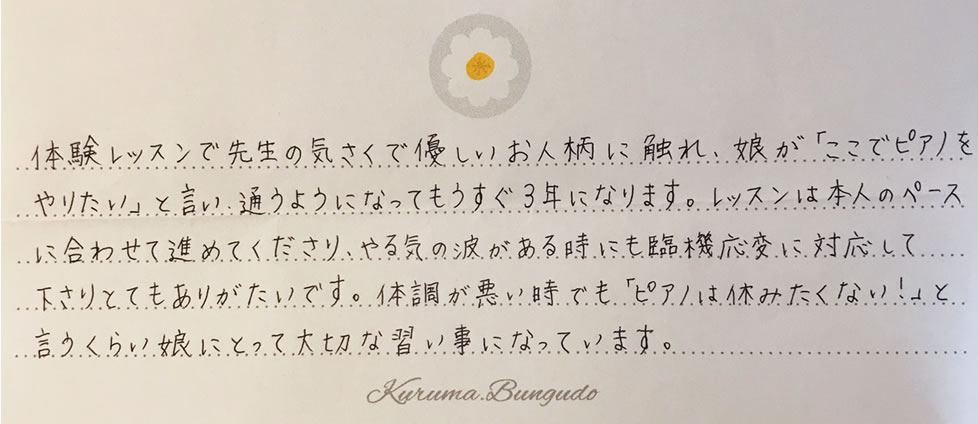 体験レッスンで先生の気さくで優しいお人柄に触れ、娘が「ここでピアノを
やりたい」と言い、通うようになってもうすぐ3年になります。レッスンは本人のペース
に合わせて進めてくださり、やる気の波がある時にも臨機応変に対応して
下さりとてもありがたいです。体調が悪い時でも「ピアノは休みたくない!」と
言うくらい娘にとって大切な習い事になっています。
Kuruma.Bungudo